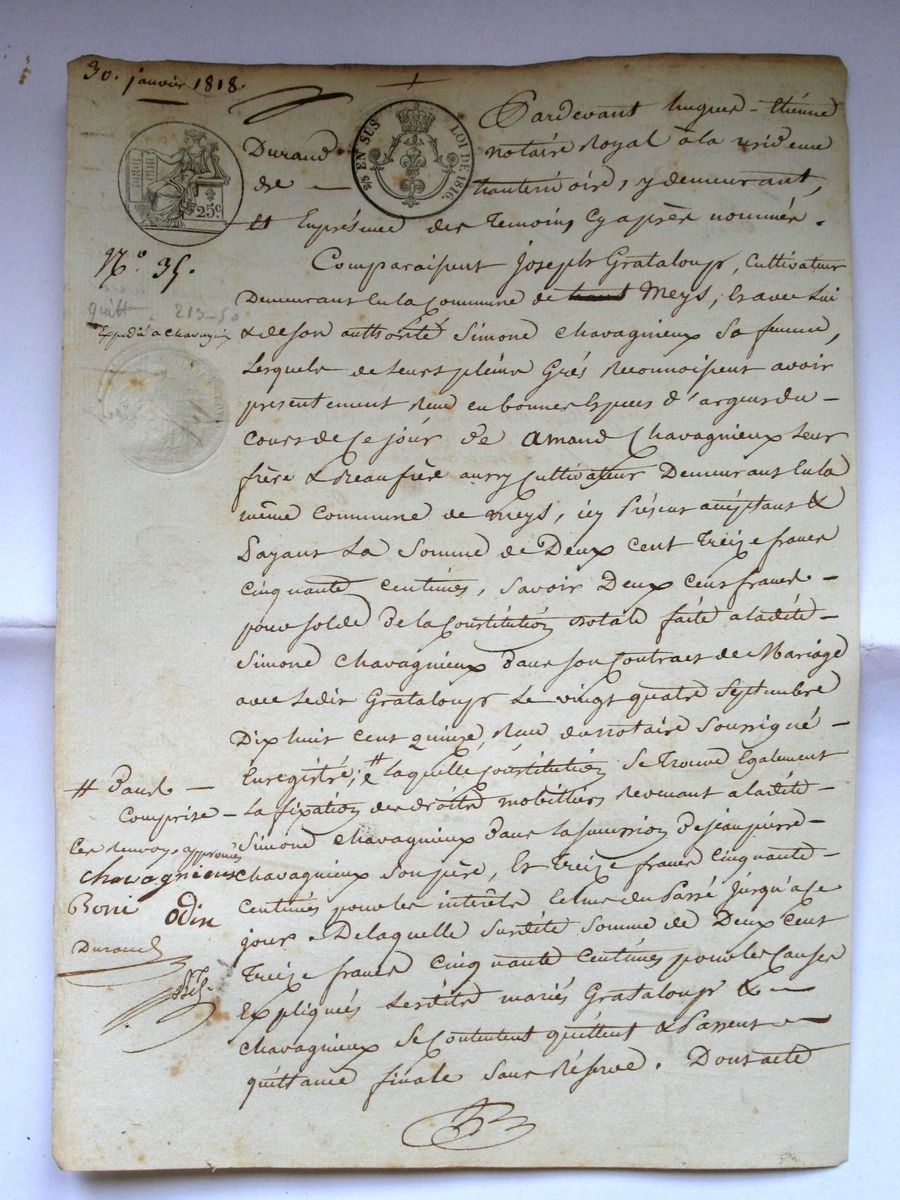 30. janvier 1818.
Pardevant hugues-Etienne
Durand notaire Royal à la residence
de hauterivoire, y demeurant,
Et En présence des Temoins Cy après nommés.
25 EN SUS LOI DE 1816.
25c
N.º 35.
quitt. 213-50
Expédié a Chavagnieux
Comparaissent Joseph Grataloup, Cultivateur
Demeurant En la Commune de haut Meys, & avec Lui
& de son authorité Simone Chavagnieux Sa femme,
Lesquels de Leurs pleins Grés Reconnaissent avoir
présentement Reçu en bonnes Espèces d'argent du
Cours de Ce jour de Amand Chavagnieux Leur
frère & Beaufrère aussy Cultivateur Demeurant En la
même Commune de Meys, icy Présent acceptant &
Payant La Somme de Deux cent Treize francs
Cinquante Centimes, Savoir Deux Cent francs
pour Solde de la Constitution dotale faite a ladite
Simone Chavagnieux dans son Contrat de Mariage
avec Ledit Grataloup Le vingt quatre Septembre
Dix huit Cent quinze, Reçu du notaire Soussigné
Enregistré; # laquelle Constitution Se Trouve Egalement
La fixation des droits mobilliers Revenant a ladite
Simone Chavagnieux dans la Succession de jean pierre
Chavagnieux Son père, Et Treize francs Cinquante
Centimes pour les intérêts Echus du Passé jusqu'a ce
jour. De laquelle Susdite Somme de Deux Cent
Treize francs Cinquante Centimes pour les Causes
Expliqués Lesdits mariés Grataloup &
Chavagnieux Se Contentent quittent & Passent
quittance finale Sans Réserve. Dont acte
# Dans
Comprise
Ces renvoys approuvés
Chavagnieux
Boni Odin
Durand